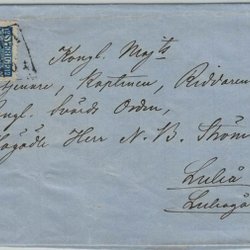 Kongl. Majts
tjenare, Kaptenen, Riddaren
ngl. Svärds Orden,
ögädle Herr N. B. Ström
Luleå
Luleågå